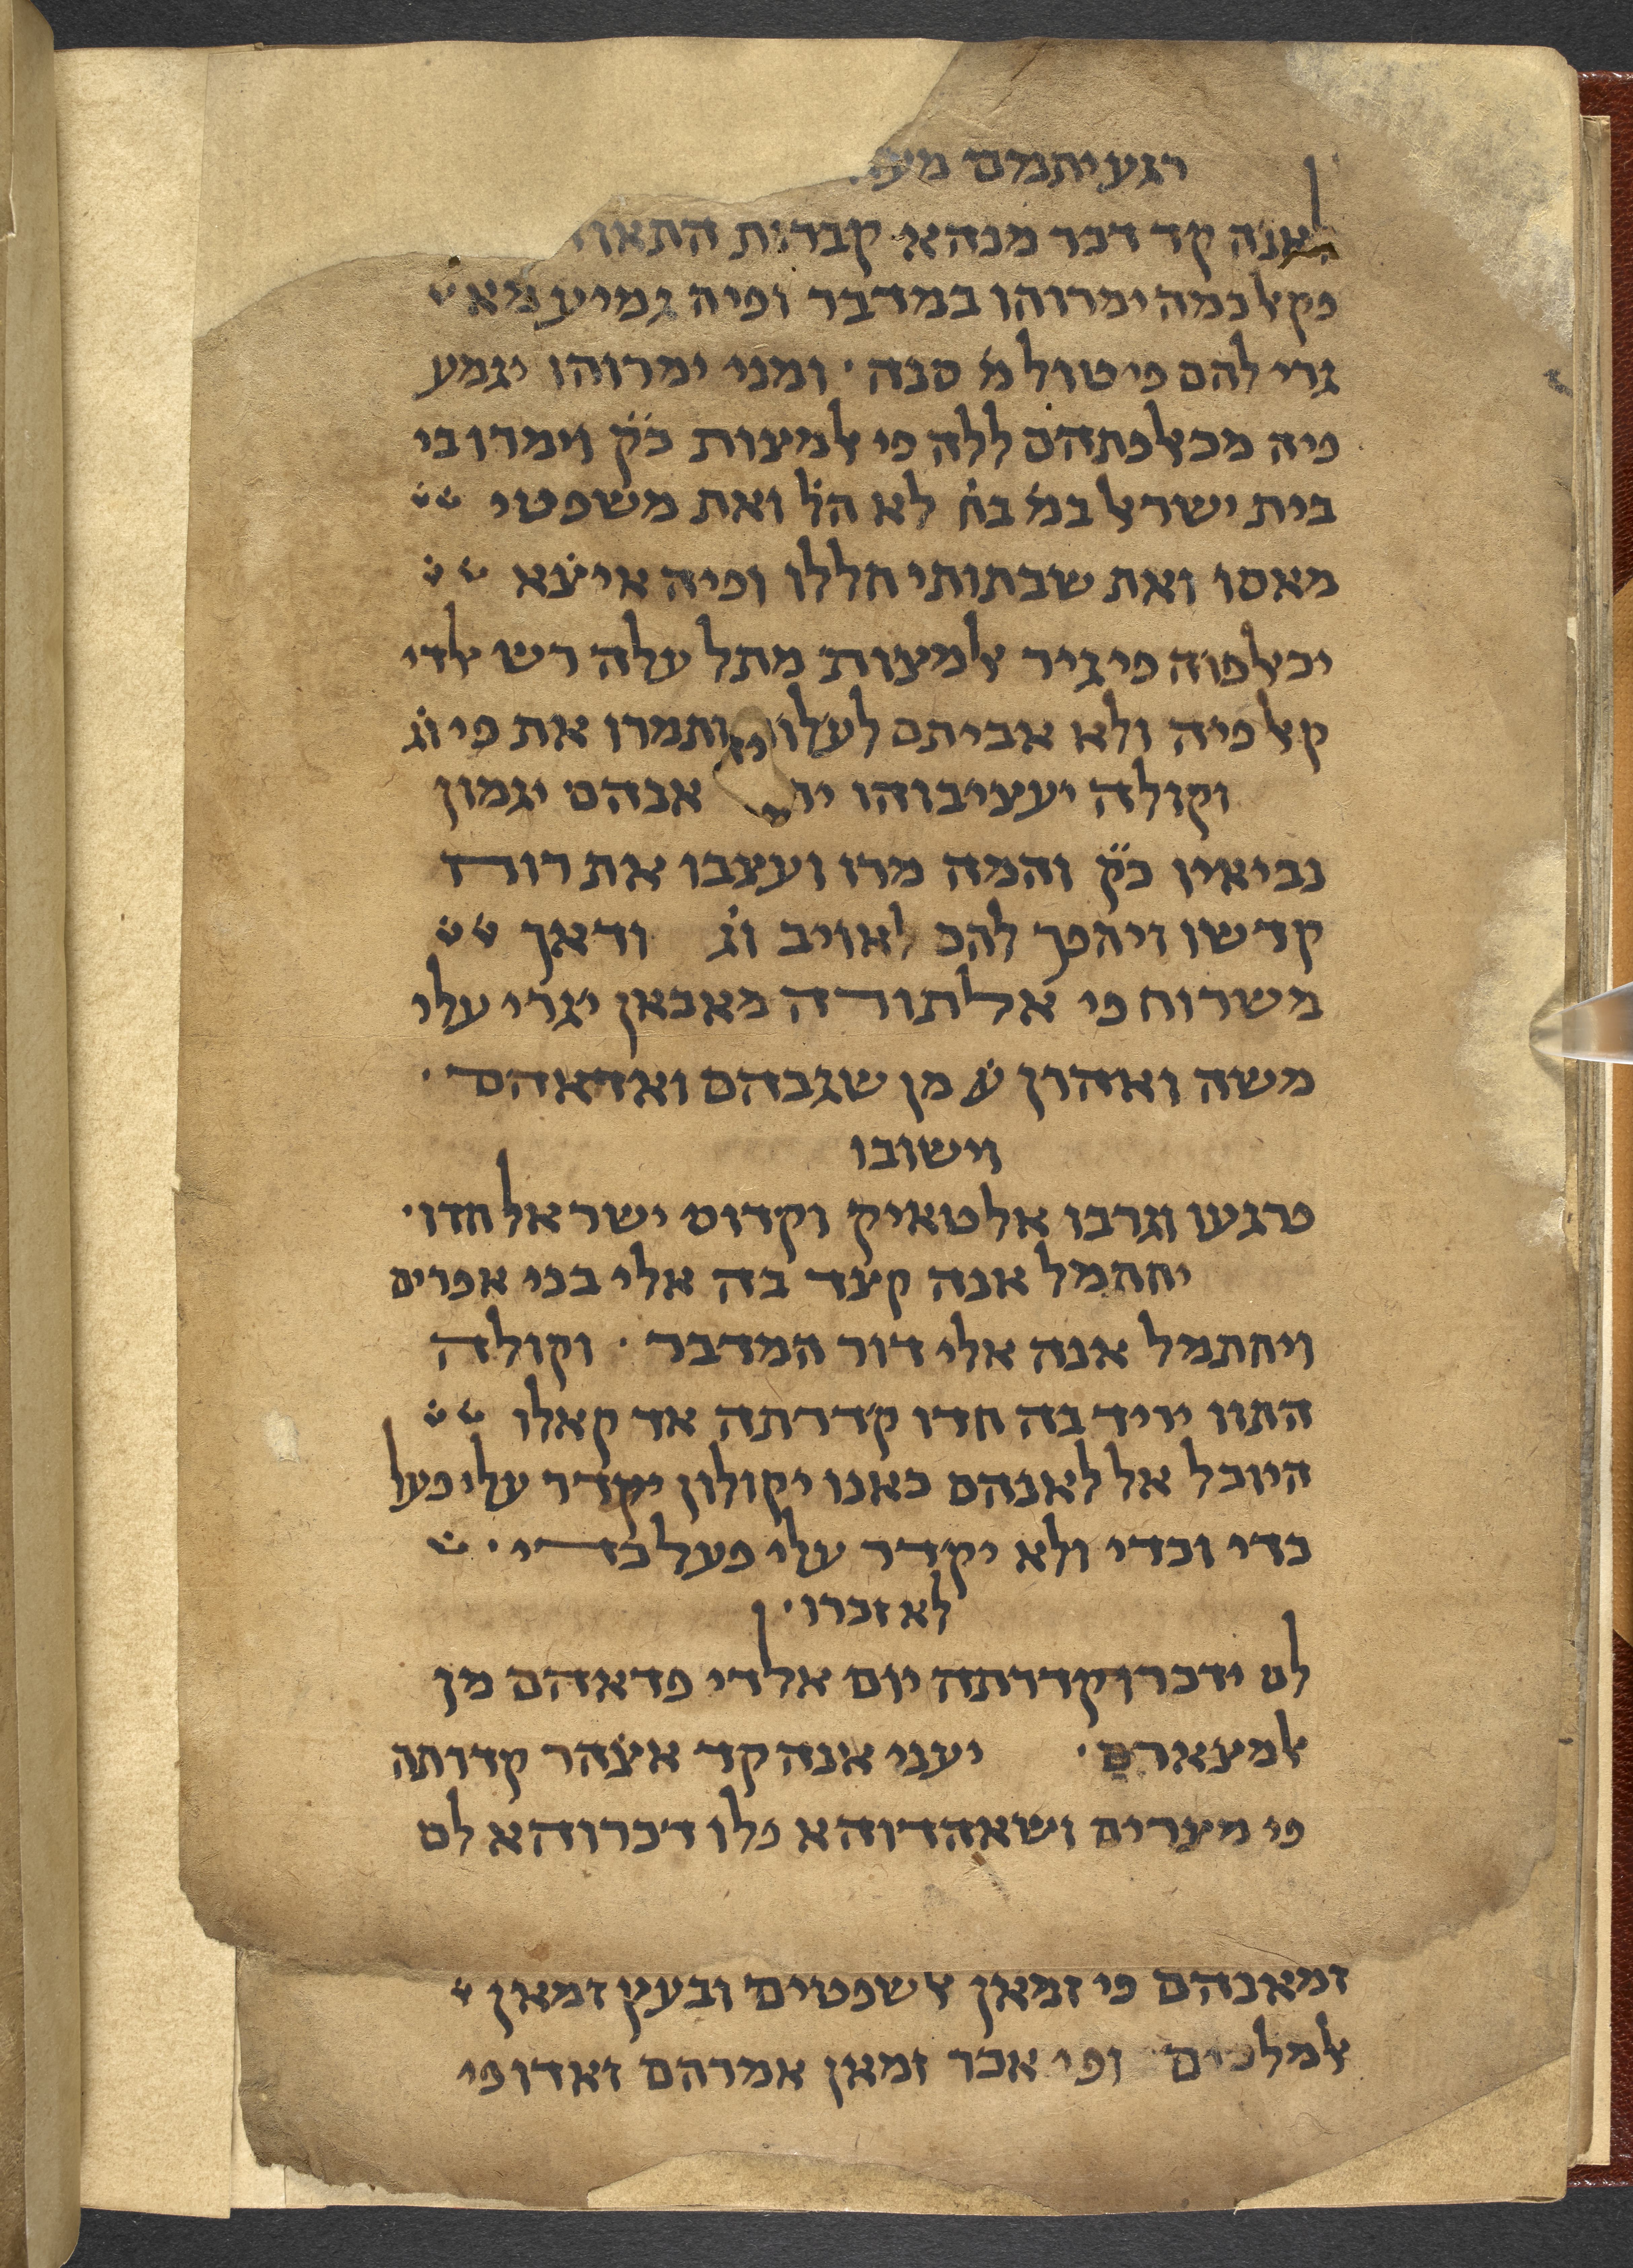 רגעיתהם מע
לאנה קד דכר מנהא קברות התאוה
פקאל כמה ימרוהו במדבר ופיה גמיע מא
גרי להם פי טול מ̇ סנה · ומני ימרוהו יגמע
פיה מכאלפתהם ללה פי אלמצות כ̈ק̈ וימרו בי
בית ישראל במ̇ בח̇ לא הל̇ ואת משפטי
מאסו ואת שבתותי חללו ופיה איצ̇א
יכאלפוה פי גיר אלמצות מתל עלה רש אלדי
קאל פיה ולא אביתם לעלות ותמרו את פי וג̇
וקולה יעציבוהו אנהם יגמון
נביאין כ̈ק̈ והמה מרו ועצבו את רוח
קדשו ויהפך להם לאויב וג̇ ודאך
משרוח פי אלתורה מאכאן יגרי עלי
משה ואהרן ע̇ מן שגבהם ואדאהם ·
וישובו
פרגעו וגרבו אלטאיק וקדוס ישראל חדו ·
יחתמל אנה קצד בה אלי בני אפרים
ויחתמל אנה אלי דור המדבר · וקולה
התוו יריד בה חדו קדרתה אד קאלו
היוכל אל לאנהם כאנו יקולון יקדר עלי פעל
כדי וכדי ולא יקדר עלי פעל כדי ·
לא זכרו ·
לם ידכרו קדרתה יום אלדי פדאהם מן
אלמצארם · יעני אנה קד אצ̇הר קדרתה
פי מצרים ושאהדוהא פלו דכרוהא לם
זמאנהם פי זמאן אלשפטים ובעץ זמאן
אלמלכים ופי אכר זמאן אמרהם זאדו פי